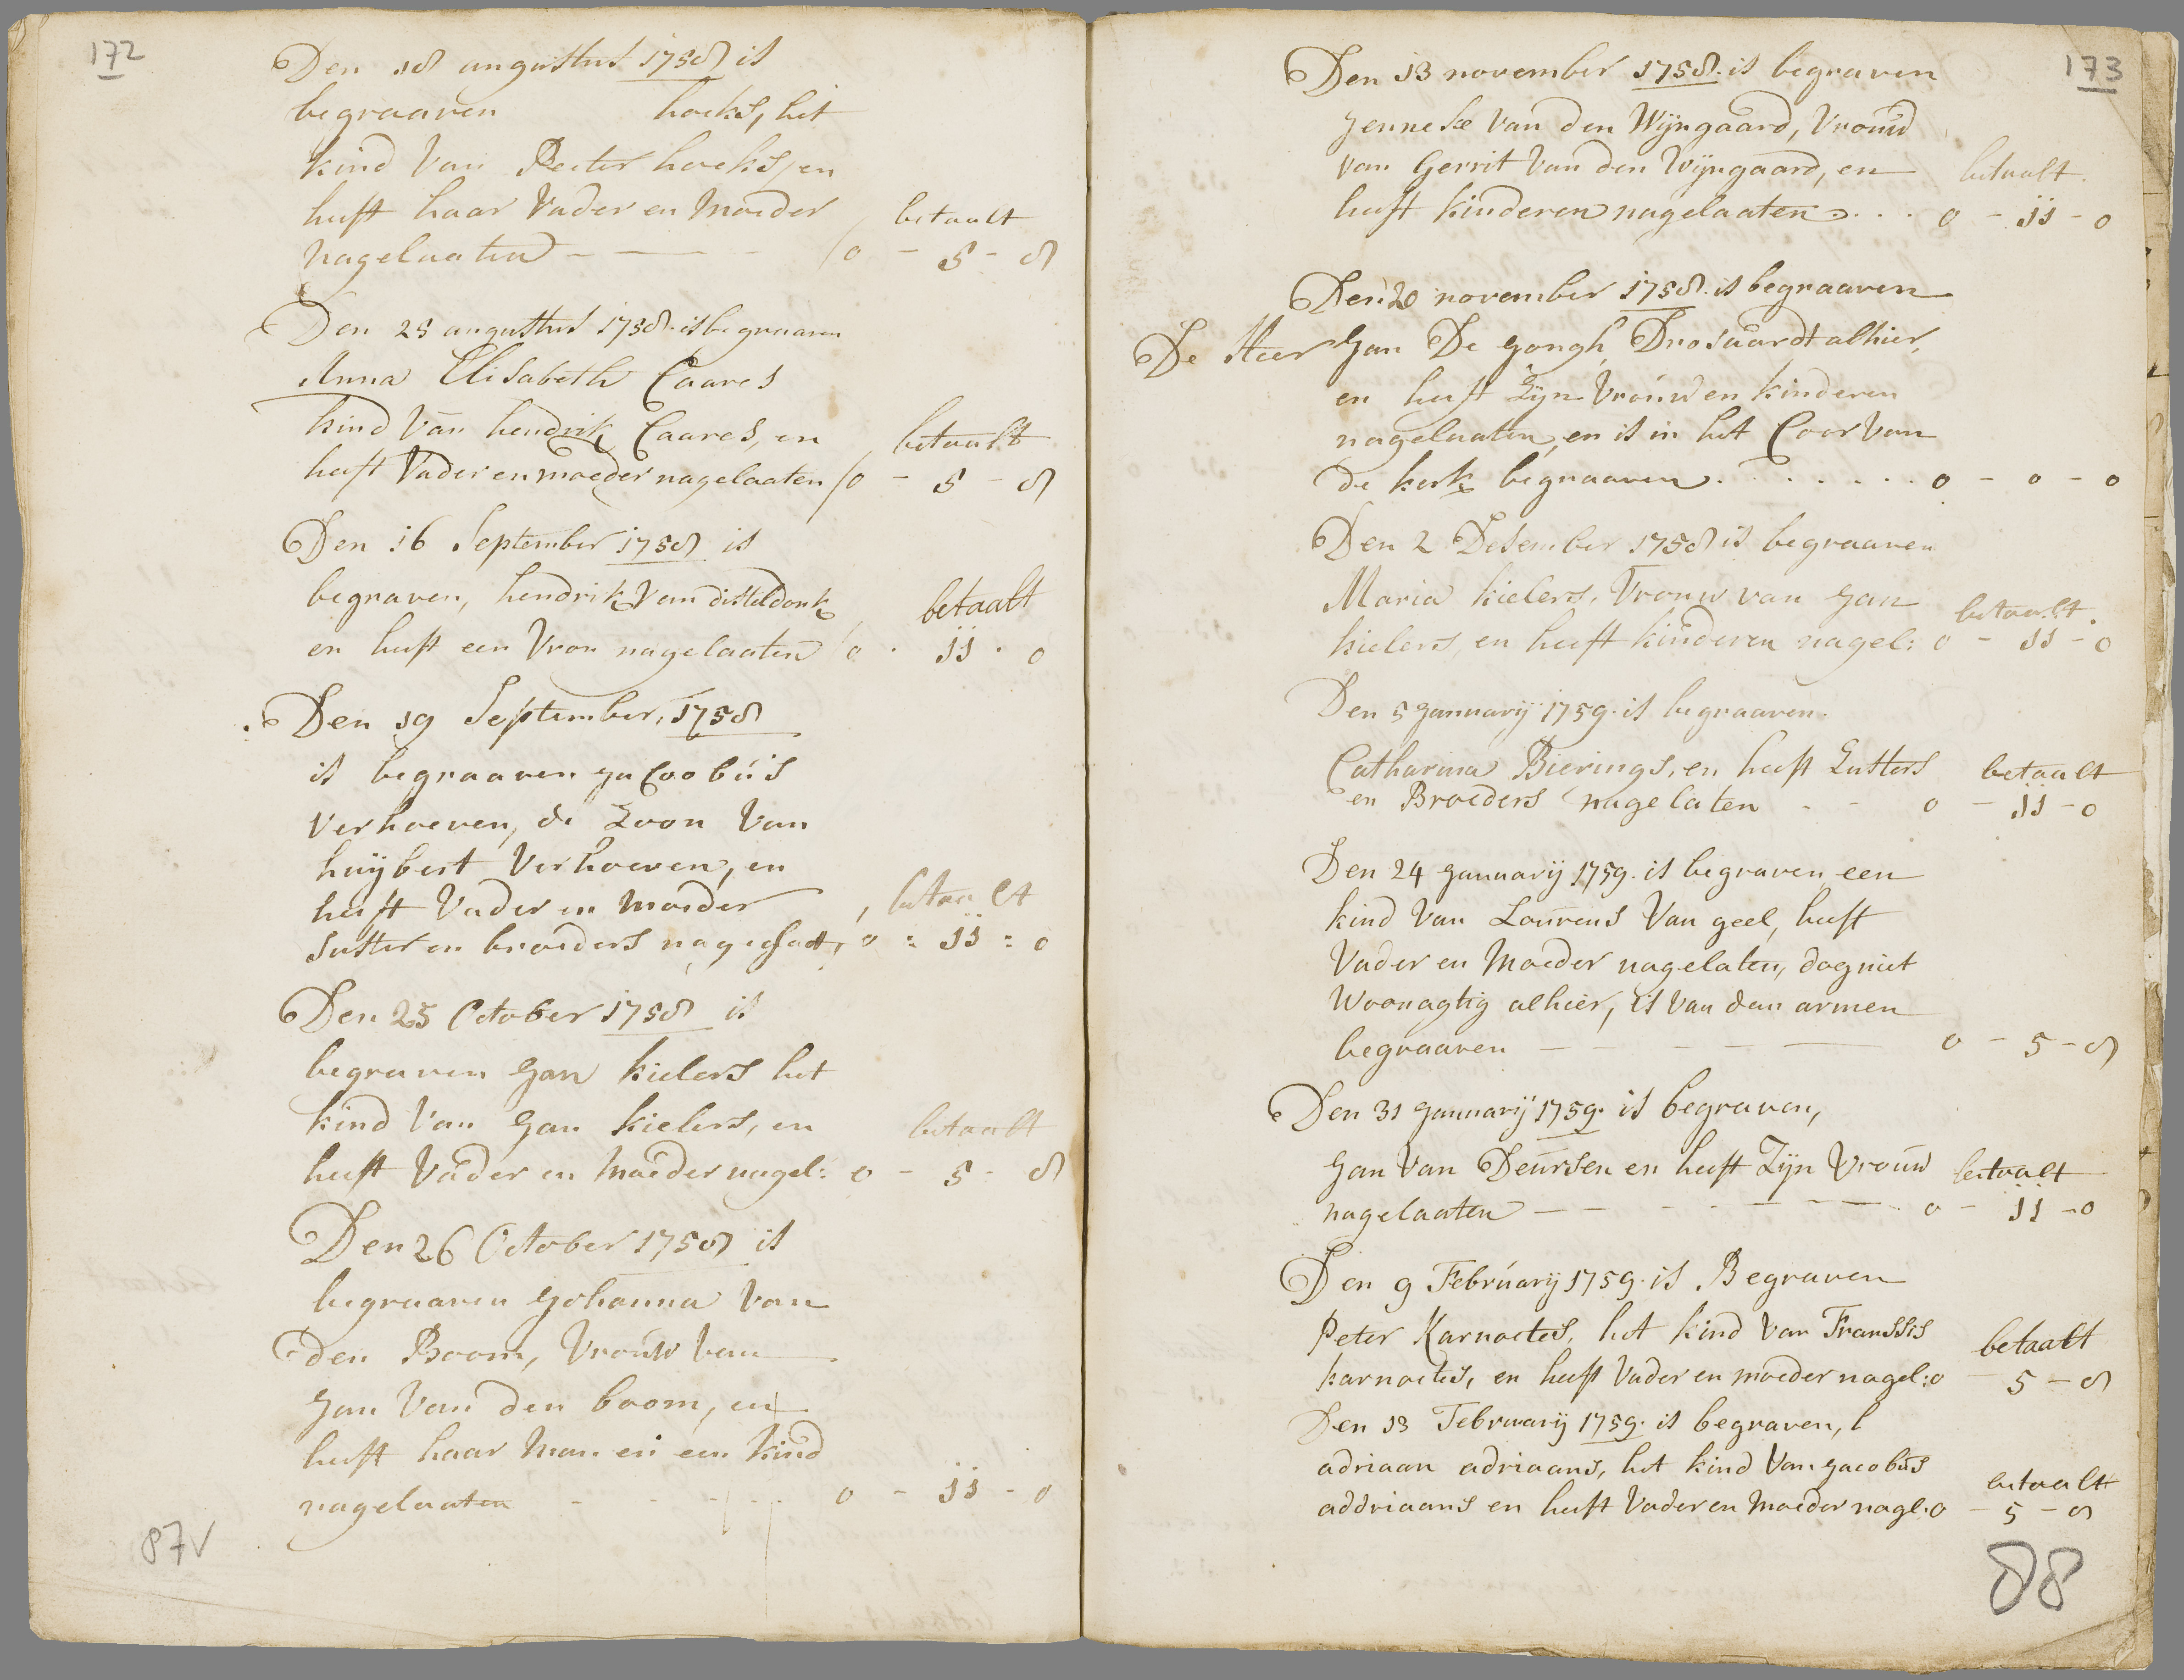 172
Den 18 augustus 1758 is
begraaven hoeks, het
kind van Peeter hoeks, en
heeft haar Vader en Moeder betaalt
nagelaaten - - - 0 - 5 - 8
Den 25 augustus 1758. is begraaven
Anna Elisabeth Caares
kind van hendrik Caares, en betaalt
heeft Vader en moeder nagelaaten 0 - 5 - 8
Den 16 September 1758 is
begraven, hendrik Van disteldonk betaalt
en heeft een Vrou nagelaaten 0 - 11 - 0
Den 19 September, 1758
is begraaven jaCoobús
Verhoeven, de Zoon Van
huijbert Verhoeven, en
heeft Vader en Moeder betaalt
Suster en broeders 0 = 11 = 0
Den 25 October 1758 is
begraven Jan kielers het
kind Van Jan kielers, en betaalt
heeft Váder en Moeder nagel: 0 - 5 - 8
Den 26 October 1758 is
begraaven Johanna Van
den Boom, Vrouw Van
Jan Van den boom, en
heeft haar Man en een kind
nagelaaten - - - 0 - 11 - 0
87v
173
Den 13 november 1758. is begraven
Jenneke Van den Wijngaard, Vrouw
van Gerrit Van den Wijngaard, en betaalt.
heeft kinderen nagelaaten . . . 0 - 11 - 0
Den 20 november 1758. is begraaven
De Heer Jan De Jongh, Drosaardt alhier,
en heeft Zijn Vroúw en kinderen
nagelaaten, en is in het Coor Van
de kerk begraaven . . . . . . . 0 - 0 - 0
Den 2 Desember 1758 is begraaven
Maria kielers, Vrouw van Jan betaalt.
kielers, en heeft kinderen nagel: 0 - 11 - 0
Den 5 Januarij 1759. is begraaven.
Catharina Bierings, en heeft Zusters betaalt
en Broeders nagelaten - - 0 - 11 - 0
Den 24 Januarij 1759. is begraven een
kind Van Lourens Van geel, heeft
Vader en Moeder nagelaten, dog niet
Woonagtig alhier, is Van den armen
begraaven - - - - - 0 - 5 - 8
Den 31 Januarij 1759. is begraven,
Jan Van Deursen en heeft Zijn Vrouw betaalt
nagelaaten - - - - - 0 - 11 - 0
Den 9 Februarij 1759. is Begraven
Peter Karnoetes, het kind van Franssis betaalt
karnoetes, en heeft Vader en moeder nagel: 0 - 5 - 8
Den 13 Februarij 1759. is begraven,
adriaan adriaans, het kind Van Jacobus betaalt
addriaans en heeft Vader en Moeder nagl: 0 - 5 - 8
88